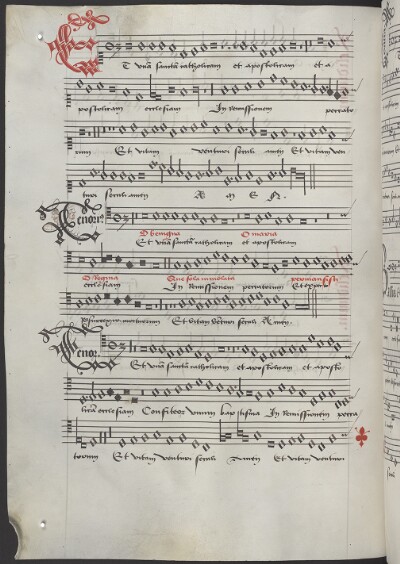 Et unā sanctā catholicam et apostolicam et a
postolicam ecclesiam In remissionem peccato
rum Et vitam venturi seculi amen Et vitam ven
turi seculi amen A M E N.
Tenor
O benigna O maria
Et unā sanctā catholicam et apostolicam
O Regina Que sola inviolata permansisti
ecclesiam In remissionem peccatorum Et expecto
Resurrectionem mortuorum Et vitam venturi seculi Amen.
Tenor
Et unā sanctā catholicam et apostolicam et aposto
licam ecclesiam Confiteor unum baptisma In remissionem pecca
torum Et vitam venturi seculi Amen Et vitam venturi